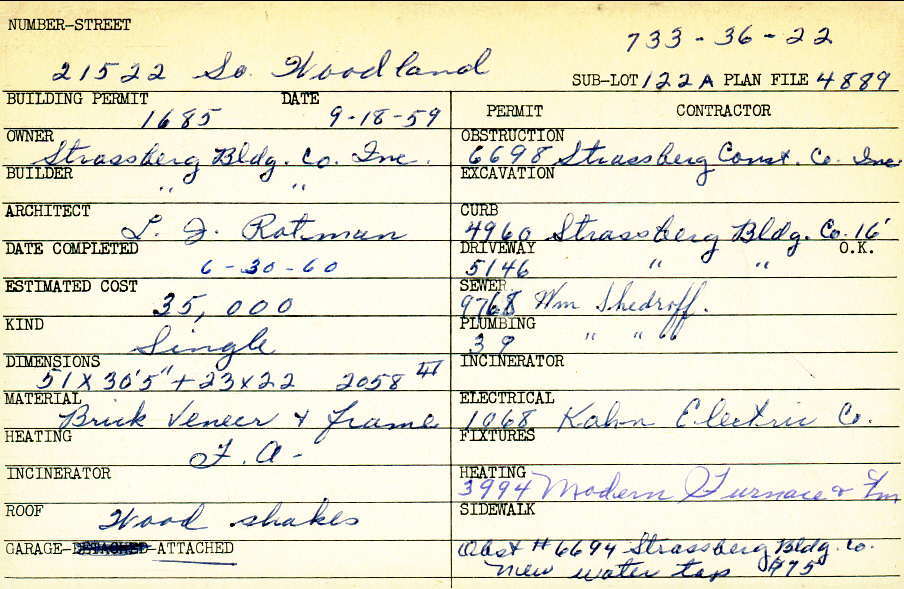 NUMBER-STREET
733-36-22
21522 So. Woodland
SUB-LOT 122A PLAN FILE 4889
BUILDING PERMIT DATE
1685 9-18-59
OWNER
Strassberg Bldg. Co. Inc.
BUILDER
" "
ARCHITECT
L. J. Rotman
DATE COMPLETED
6-30-60
ESTIMATED COST
35,000
KIND
Single
DIMENSIONS
51 X 30'5" + 23 x 22 2058
MATERIAL
Brick Veneer & frame
HEATING
F. A-
INCINERATOR
ROOF
Wood shakes
GARAGE-DETACHED-ATTACHED
PERMIT CONTRACTOR
OBSTRUCTION
6698 Strassberg Const. Co. Inc
EXCAVATION
CURB
4960 Strassberg Bldg. Co. 16'
DRIVEWAY O.K.
5146 " "
SEWER
9768 Wm Shedroff.
PLUMBING
39 " " "
INCINERATOR
ELECTRICAL
1068 Kahn Electric Co.
FIXTURES
HEATING
3994 Modern Furnace &
SIDEWALK
Obst # 6694 Strassberg Bldg. Co.
New water tap $75